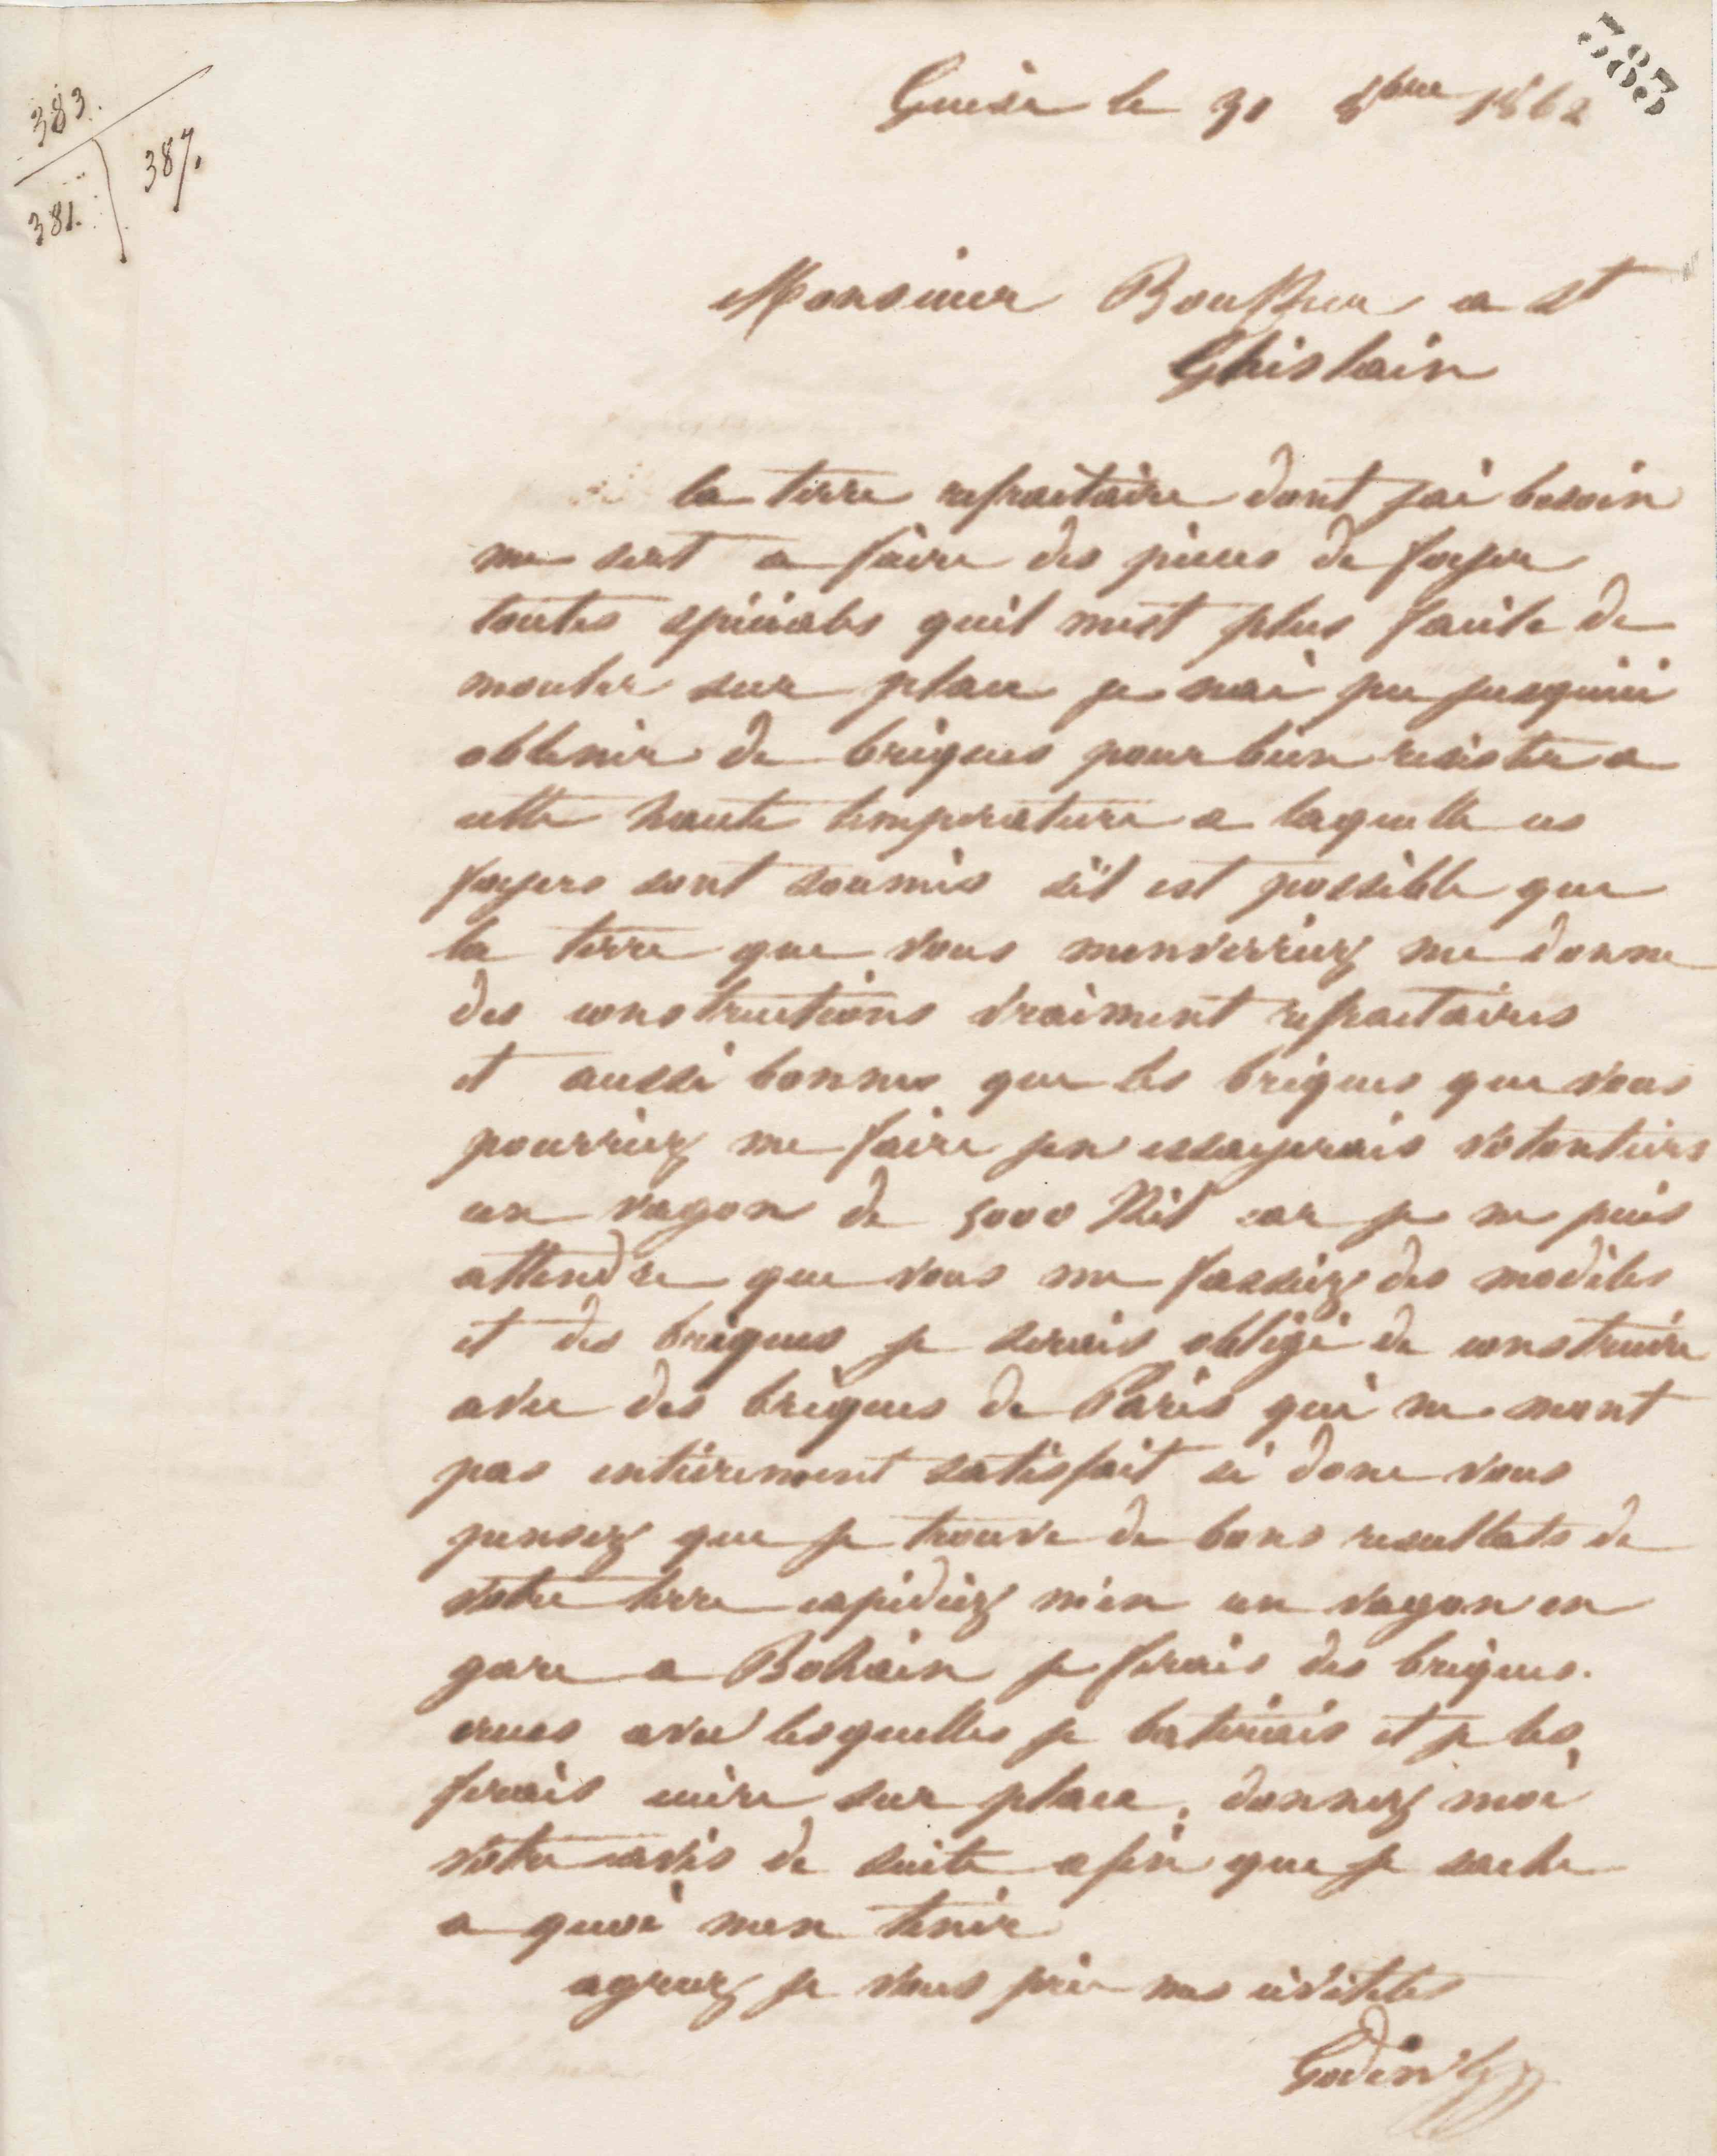 383
383.
381.
387.
Guise le 31 8bre 1862
Monsieur a St
Ghislain
la terre refractaire dont jai besoin
me sert a faire des pieces de foyer
toutes speciales quil mest plus facile de
mouler sur place je nai pu jusquici
obtenir de briques pour bien resister a
cette haute temperature a laquelle ces
foyers sont soumis sil est possible que
la terre que vous menverriez me donne
des constructions vraiment refractaires
et aussi bonnes que les briques que vous
pourriez me faire jen essayerais volontiers
un vagon de 5000 Kil car je ne puis
attendre que vous me fassiez des modèles
et des briques je serais obligé de construire
avec des briques de Paris qui ne mont
pas entierement satisfait si donc vous
pensez que je trouve de bons resultats de
votre terre expediez m'en un vagon en
gare a Bohain je ferais des briques.
crues avec lesquelles je batirais et je les
ferais cuire sur place, donnez moi
votre avis de suite afin que je sache
a quoi men tenir
agreez je vous prie mes civilités
Godin